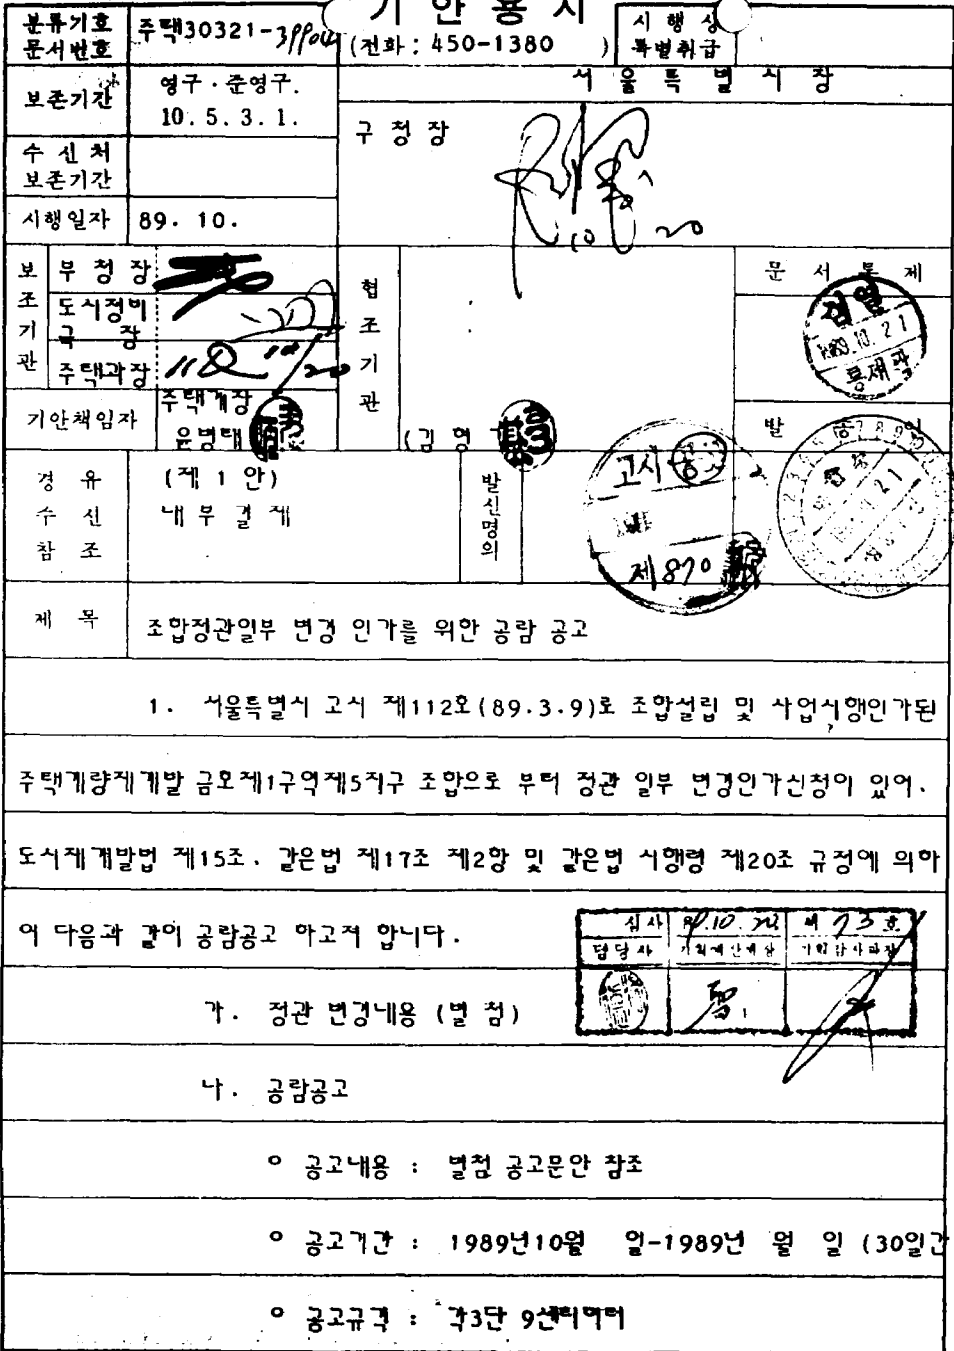 기 안 용 지
분류기호
문서번호
주택30321-
(전화 : 450-1380 )
시 행 상
특별취급
보존기간
영구 · 준영구.
10. 5. 3. 1.
서 울 특 별 시 장
수 신 처
보존기간
구 청 장
시행일자
89. 10.
10 20
보 조 기 관
부 청 장
도시정비
국 장
주택과장
협 조 기 관
문 서 통 제
검열
1989.10.21
통제관
기안책임자
주택계장
윤병태
(김 영
발 송 인
경 유
수 신
참 조
(제 1 안)
내 부 결 재
발신명의
고시
제870
제 목
조합정관일부 변경 인가를 위한 공람 공고
1. 서울특별시 고시 제112호(89.3.9)로 조합설립 및 사업시행인가된
주택개량재개발 금호제1구역제5지구 조합으로 부터 정관 일부 변경인가신청이 있어.
도시재개발법 제15조. 같은법 제17조 제2항 및 같은법 시행령 제20조 규정에 의하
여 다음과 같이 공람공고 하고저 합니다.
심사 제 73 호
담당사 기획예산계장 기획감사과장
가. 정관 변경내용 (별 첨)
나. 공람공고
o 공고내용 : 별첨 공고문안 참조
o 공고기간 : 1989년10월 일-1989년 월 일 (30일간
o 공고규격 : 각3단 9센티미터